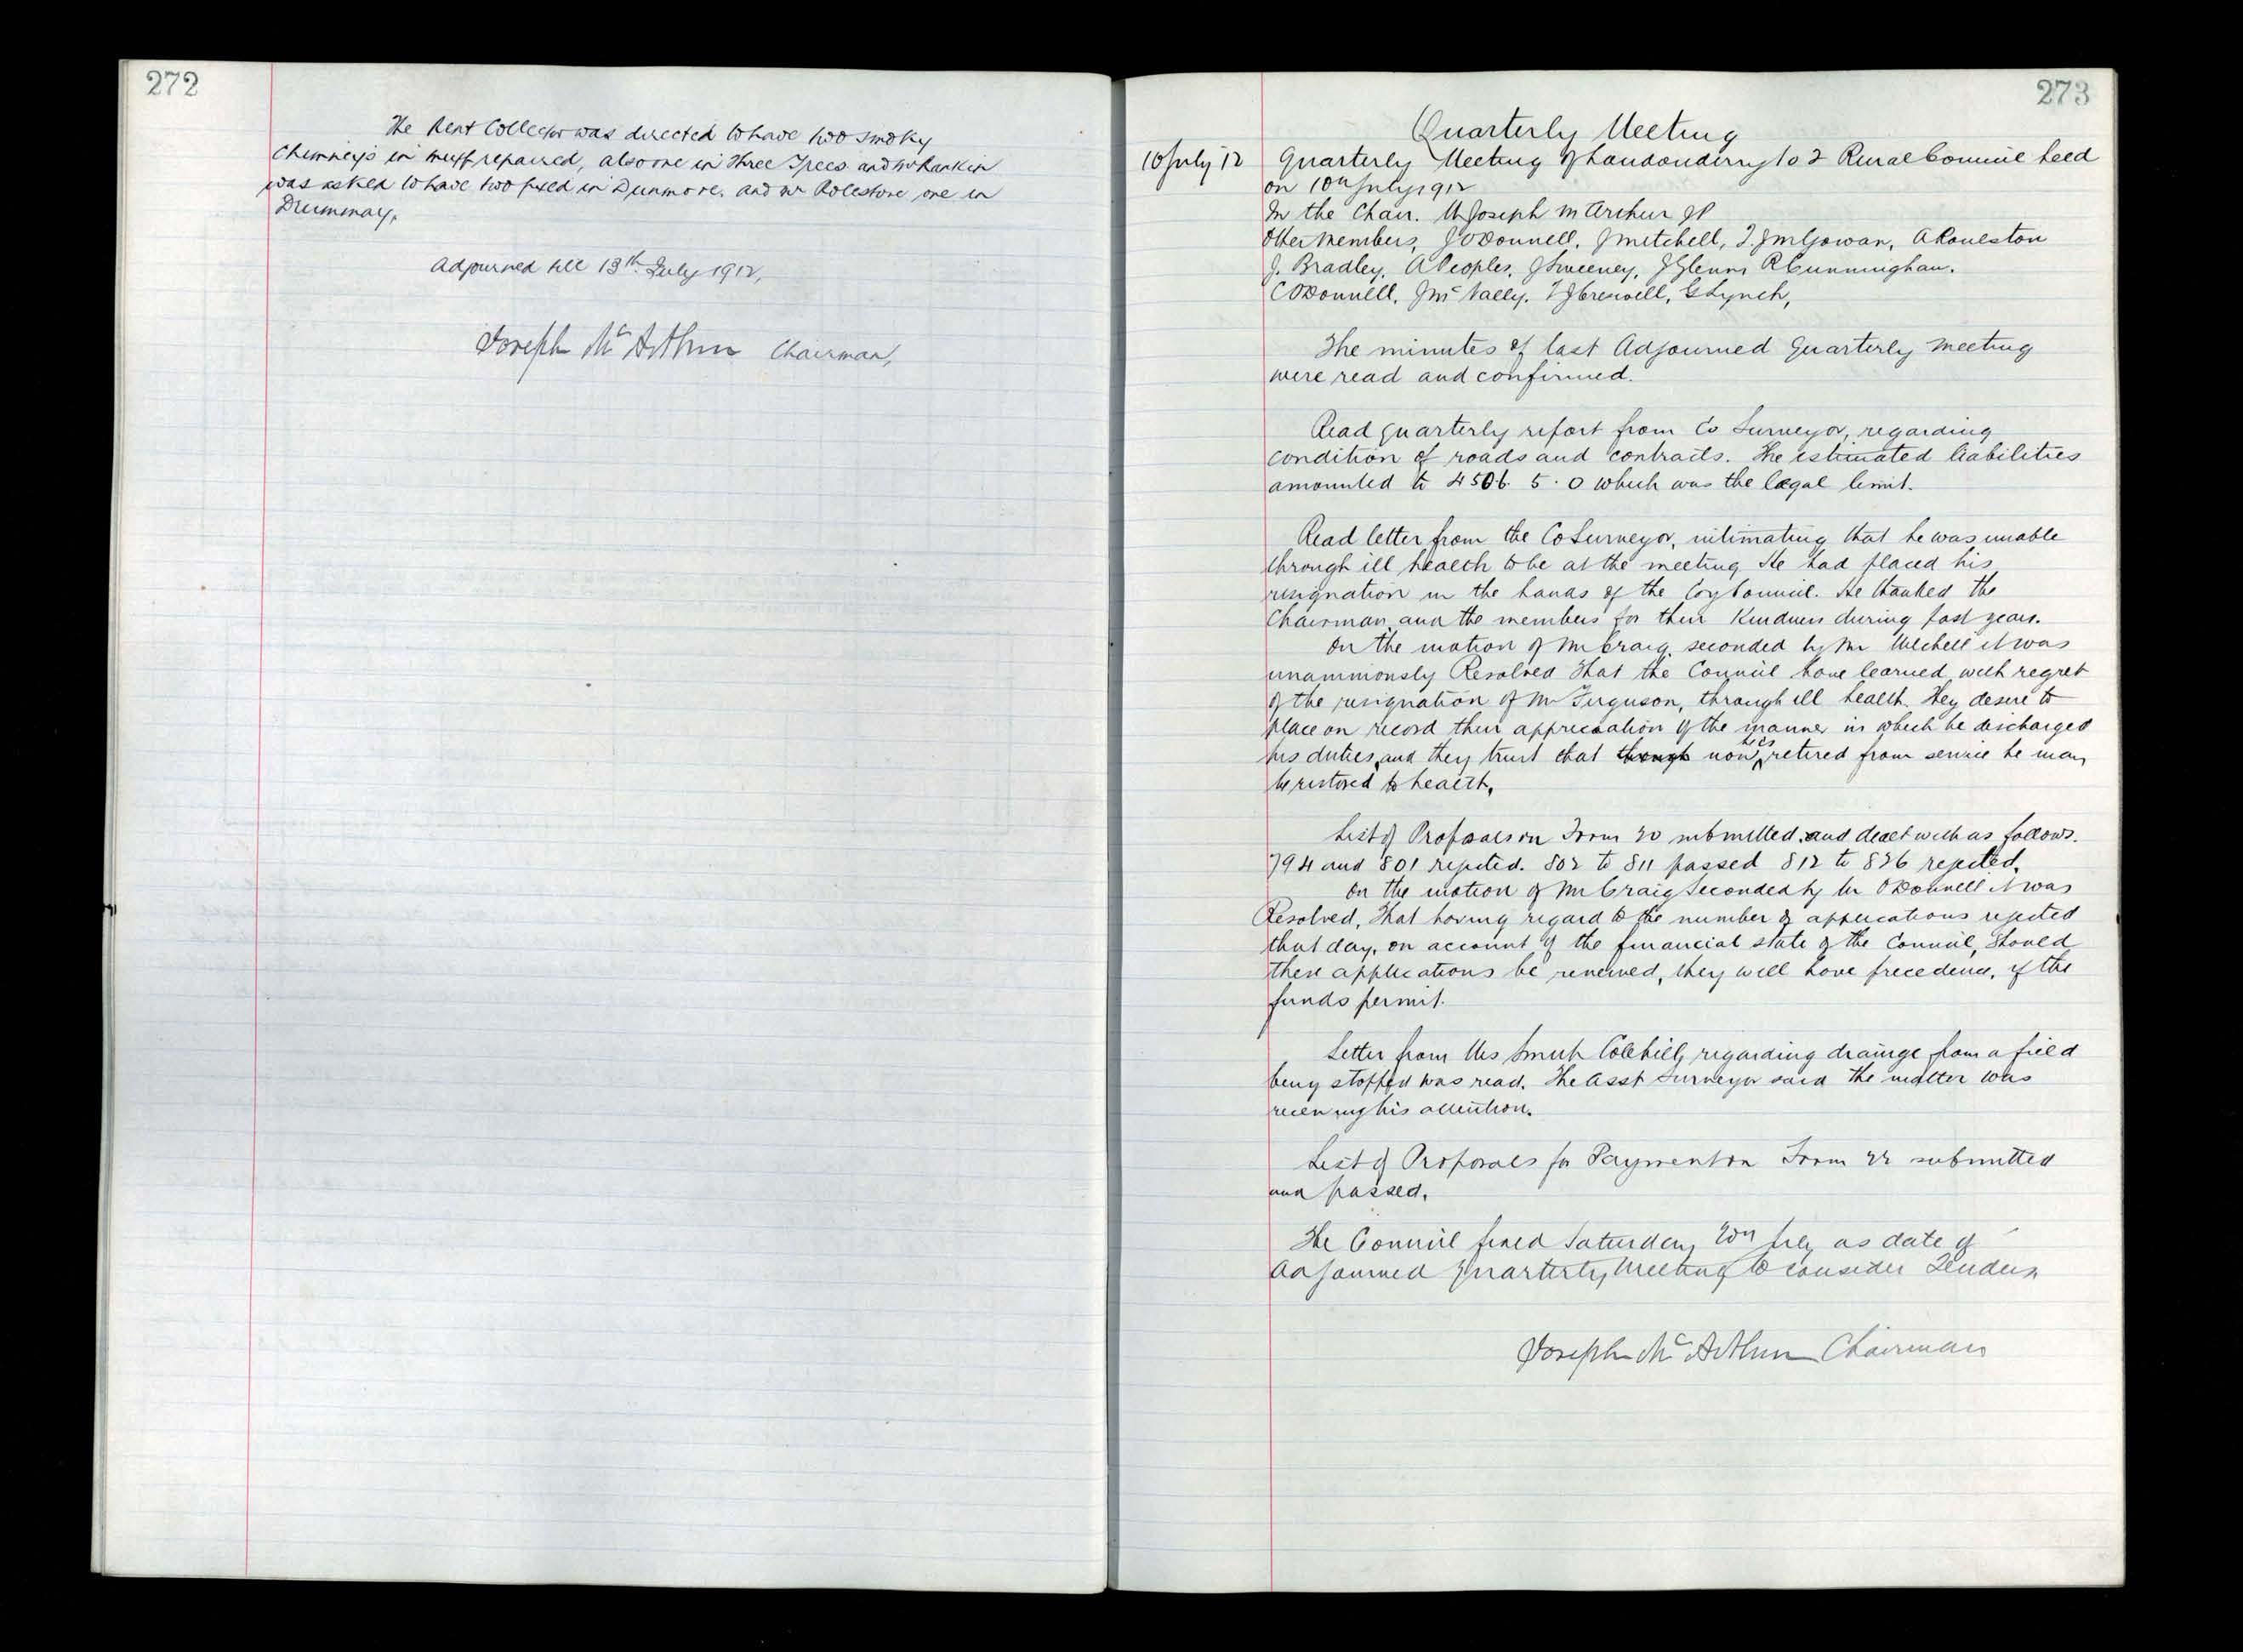 272
The Rent Collector was directed to have two smoky
Chimneys in Muff repaired, also one in Three Trees and Mr Rankin
was asked to have two fixed in Dunmore. and Mr Rolestone one in
Drummay.
Adjourned till 13th July 1912,
Joseph McArthur Chairman,
273
Quarterly Meeting
10 July 12 Quarterly Meeting of Londonderry No 2 Rural Council held
on 10th July 1912
In the Chair. Mr Joseph McArthur JP
Other Members, J O'Donnell, J Mitchell, T. J McGowan, A Roulston
J. Bradley, A Peoples, J Sweeney, J Glenn R Cunningham.
C O'Donnell, J McNally, T J Creswell, G Lynch,
The minutes of last Adjourned Quarterly Meeting
were read and confirmed.
Read quarterly report from Co Surveyor, regarding
condition of roads and contracts. The estimated liabilities
amounted to 4506. 5. 0 which was the legal limit.
Read letter from the Co Surveyor, intimating that he was unable
through ill health to be at the meeting He had placed his
resignation in the hands of the Coy Council. He thanked the
Chairman and the members for their kindness during past years.
On the motion of Mr Craig, seconded by Mr Mitchell it was
unanimously Resolved That the Council have learned with regret
of the resignation of Mr Ferguson, through ill health. They desire to
place on record their appreciation of the manner in which he discharged
his duties, and they trust that though now he is retired from service he may
be restored to health,
List of Proposals on Form 20 submitted and dealt with as follows.
794 and 801 rejected. 802 to 811 passed 812 to 826 rejected.
On the motion of Mr Craig Seconded by Mr O'Donnell it was
Resolved, That having regard to the number of applications rejected
that day, on account of the financial state of the Council, should
these applications be renewed, they will have precedence, if the
funds permit.
Letter from Mrs Smith Colehill, regarding drainge from a field
being stopped was read. The Asst Surveyor said the matter was
receiving his attention.
List of Proposals for Payment on Form 22 submitted
and passed.
The Council fixed Saturday 20th July as date of
Adjourned Quarterly Meeting to consider Tenders
Joseph McArthur Chairman